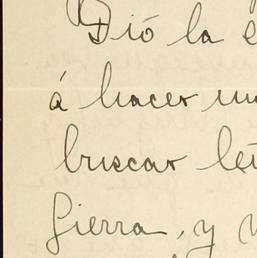 Dió la
á hacer
buscar
Sierra, y